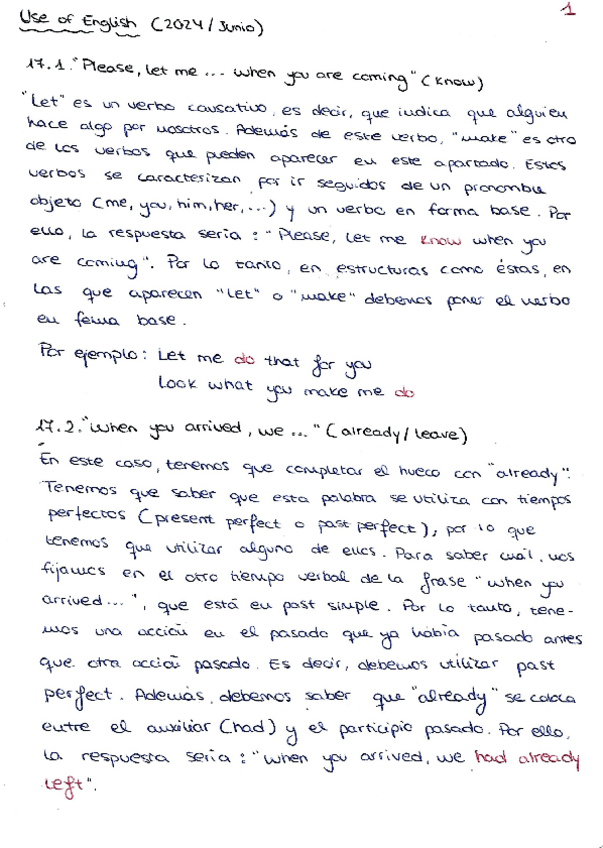 Use of English (2024/Junio)
1
17.1. "Please, let me ... when you are coming" (know)
"Let" es un verbo causativo, es decir, que indica que alguien
hace algo por nosotros. Además de este verbo, "make" es otro
de los verbos que pueden aparecer en este apartado. Estos
verbos se caracterizan por ir seguidos de un pronombre
objeto (me, you, him, her, ...) y un verbo en forma base. Por
ello, la respuesta sería: "Please, let me know when you
are coming". Por lo tanto, en estructuras como éstas, en
las que aparecen "let" o "make" debemos poner el verbo
en forma base.
Por ejemplo: Let me do that for you
Look what you make me do
17.2. "When you arrived, we ..." (already/leave)
En este caso, tenemos que completar el hueco con "already".
Tenemos que saber que esta palabra se utiliza con tiempos
perfectos (present perfect o past perfect), por lo que
tenemos que utilizar alguno de ellos. Para saber cuál, nos
fijamos en el otro tiempo verbal de la frase "when you
arrived...", que está en past simple. Por lo tanto, tene-
mos una acción en el pasado que ya había pasado antes
que otra acción pasada. Es decir, debemos utilizar past
perfect. Además, debemos saber que "already" se coloca
entre el auxiliar (had) y el participio pasado. Por ello,
la respuesta sería: "When you arrived, we had already
left".